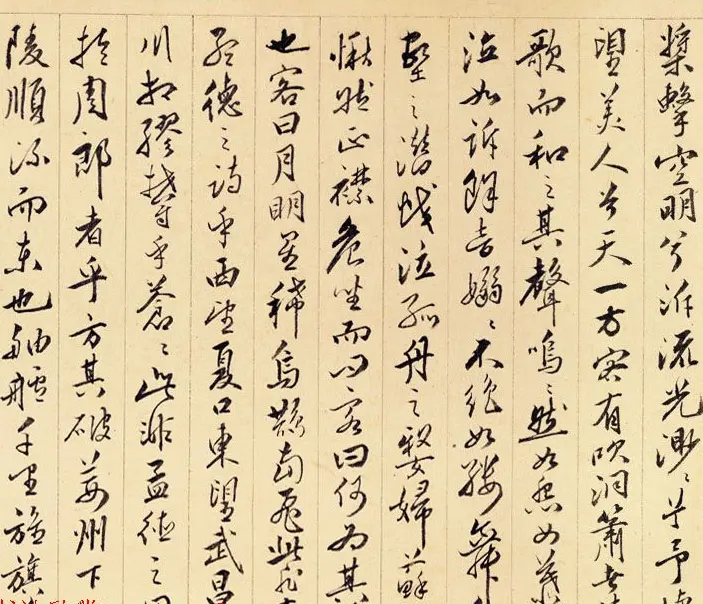 槳擊空明兮泝流光渺々兮予
望美人兮天一方客有吹洞簫
歌而和之其聲嗚々然如怨如慕
泣如訴餘音嫋々不絶如縷舞
壑之潛蛟泣孤舟之嫠婦蘇
愀然正襟危坐而問客曰何為其
也客曰月明星稀烏鵲南飛此非
孟德之詩乎西望夏口東望武昌
川相繆鬱乎蒼々此非孟德之困
於周郎者乎方其破荊州下
陵順流而東也舳艫千里旌旗